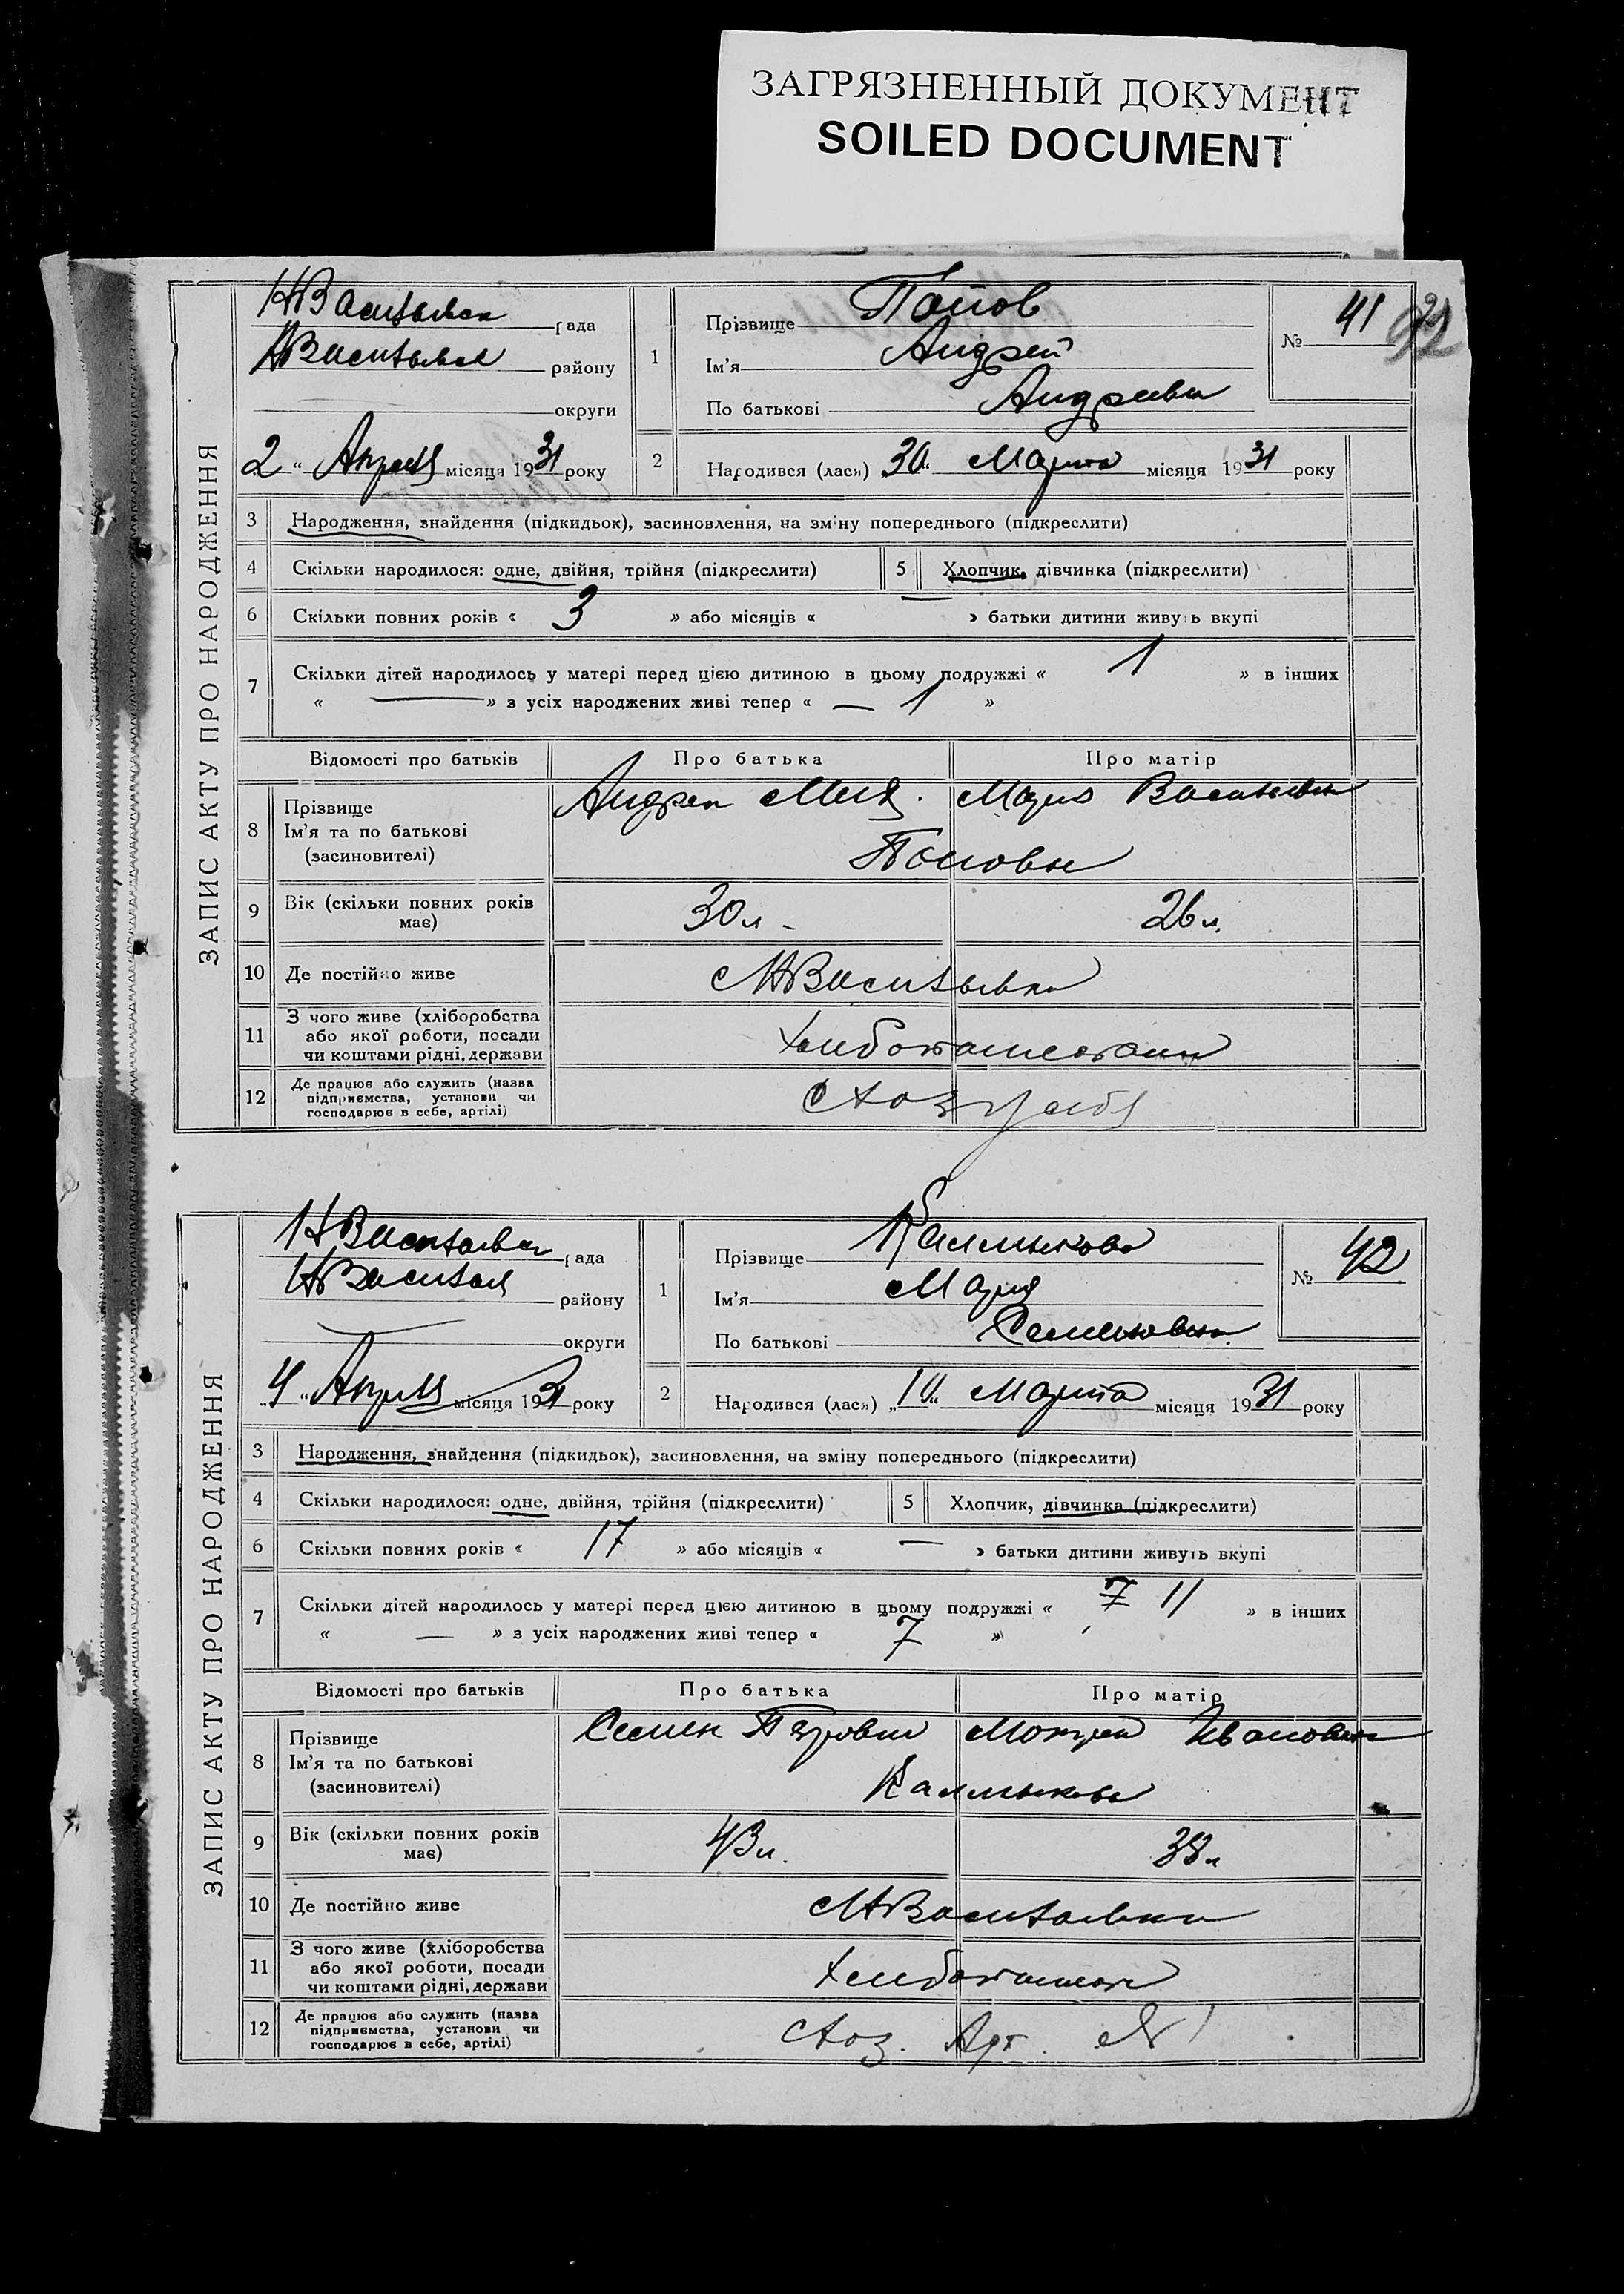 ЗАГРЯЗНЕННЫЙ ДОКУМЕНТ
SOILED DOCUMENT
ЗАПИС АКТУ ПРО НАРОДЖЕННЯ
НВасильевск рада
НВасильевск району
округи
2 " Апреля місяця 1931 року
1 Прізвище Попов
Ім'я Андрей
По батькові Андреевич
№ 41
2 Народився (лася) 30 " Марта місяця 1931 року
3 Народження, знайдення (підкидьок), засиновлення, на зміну попереднього (підкреслити)
4 Скільки народилося: одне, двійня, трійня (підкреслити) 5 Хлопчик, дівчинка (підкреслити)
6 Скільки повних років « 3 » або місяців « — » батьки дитини живуть вкупі
7 Скільки дітей народилось у матері перед цією дитиною в цьому подружжі « 1 » в інших
« — » з усіх народжених живі тепер « — 1 »
Відомості про батьків Про батька Про матір
8 Прізвище
Ім'я та по батькові
(засиновителі)
Андрей Мария Васильевна
Поповы
9 Вік (скільки повних років має) 30 л - 26 л.
10 Де постійно живе НВасильевка
11 З чого живе (хліборобства
або якої роботи, посади
чи коштами рідні, держави
12 Де працює або служить (назва
підприємства, установи чи
господарює в себе, артілі)
ЗАПИС АКТУ ПРО НАРОДЖЕННЯ
НВасильевск рада
НВасильев району
округи
4 " Апреля місяця 1931 року
1 Прізвище Калмыкова
Ім'я Мария
По батькові Семеновна
№ 42
2 Народився (лася) „10" Марта місяця 1931 року
3 Народження, знайдення (підкидьок), засиновлення, на зміну попереднього (підкреслити)
4 Скільки народилося: одне, двійня, трійня (підкреслити) 5 Хлопчик, дівчинка (підкреслити)
6 Скільки повних років « 17 » або місяців « — » батьки дитини живуть вкупі
7 Скільки дітей народилось у матері перед цією дитиною в цьому подружжі « 7 11 » в інших
« — » з усіх народжених живі тепер « 7 »
Відомості про батьків Про батька Про матір
8 Прізвище
Ім'я та по батькові
(засиновителі)
Семен Петрович Ивановна
Калмыковы
9 Вік (скільки повних років має) 43 л. 38 л
10 Де постійно живе НВасильевка
11 З чого живе (хліборобства
або якої роботи, посади
чи коштами рідні, держави
12 Де працює або служить (назва
підприємства, установи чи
господарює в себе, артілі)
Арт.